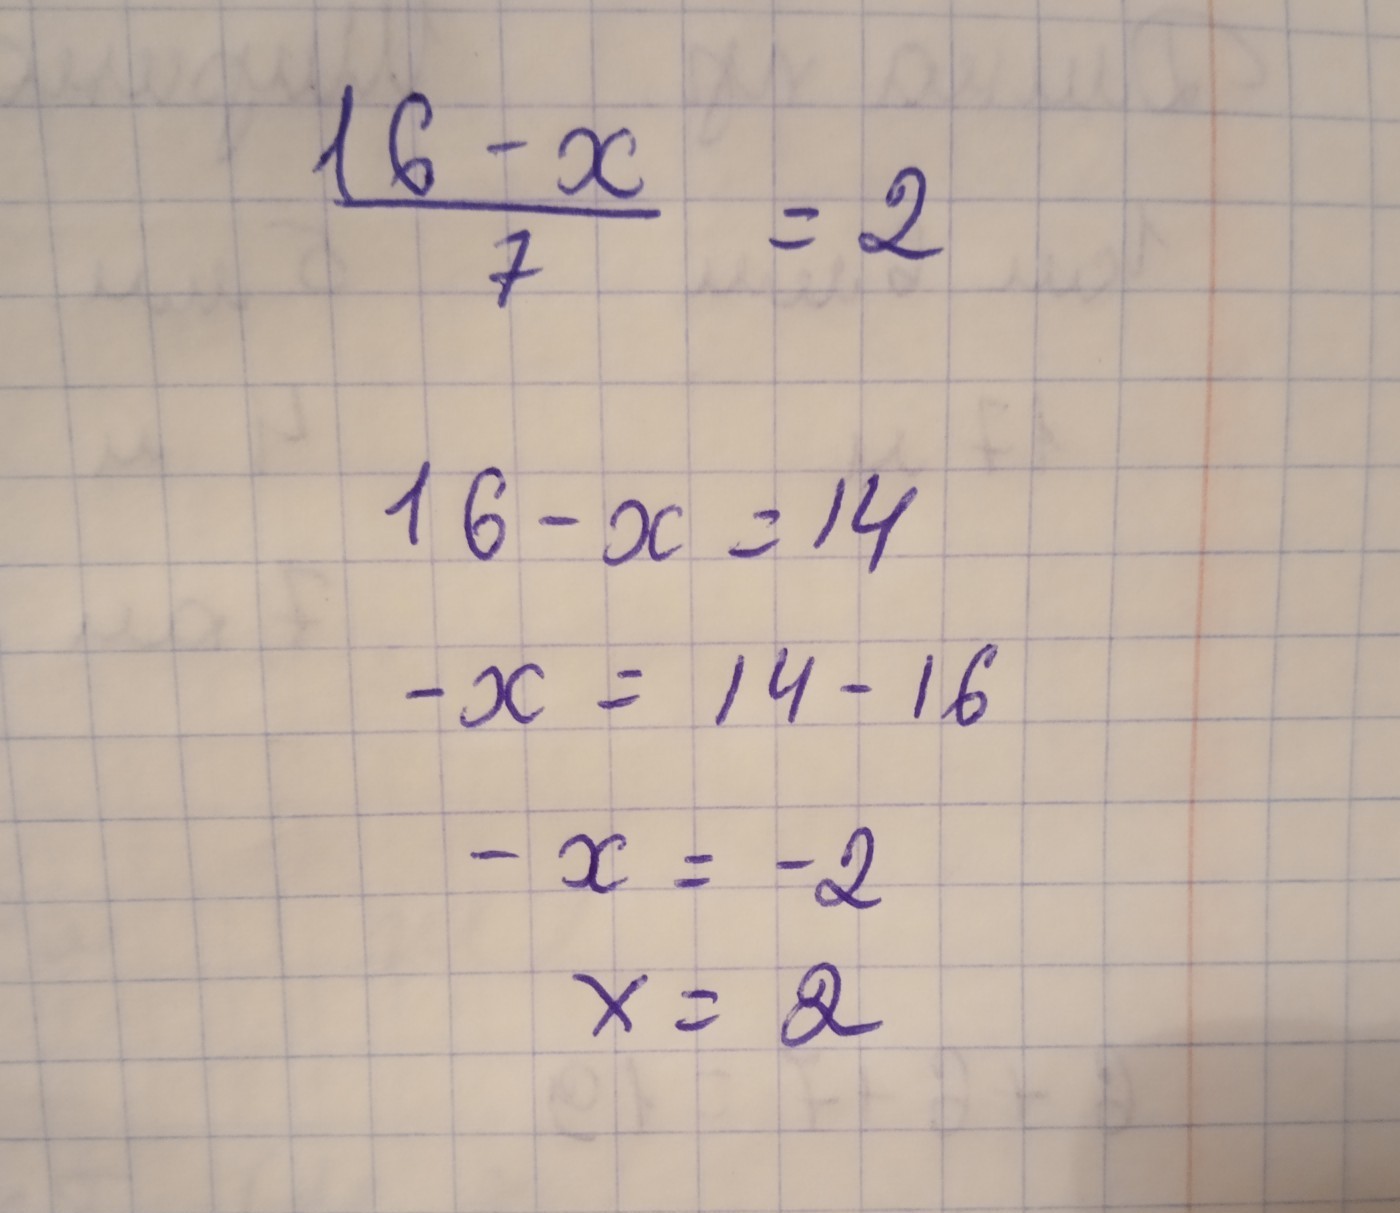 16 - x
7
= 2
16 - x = 14
-x = 14 - 16
- x = -2
x = 2